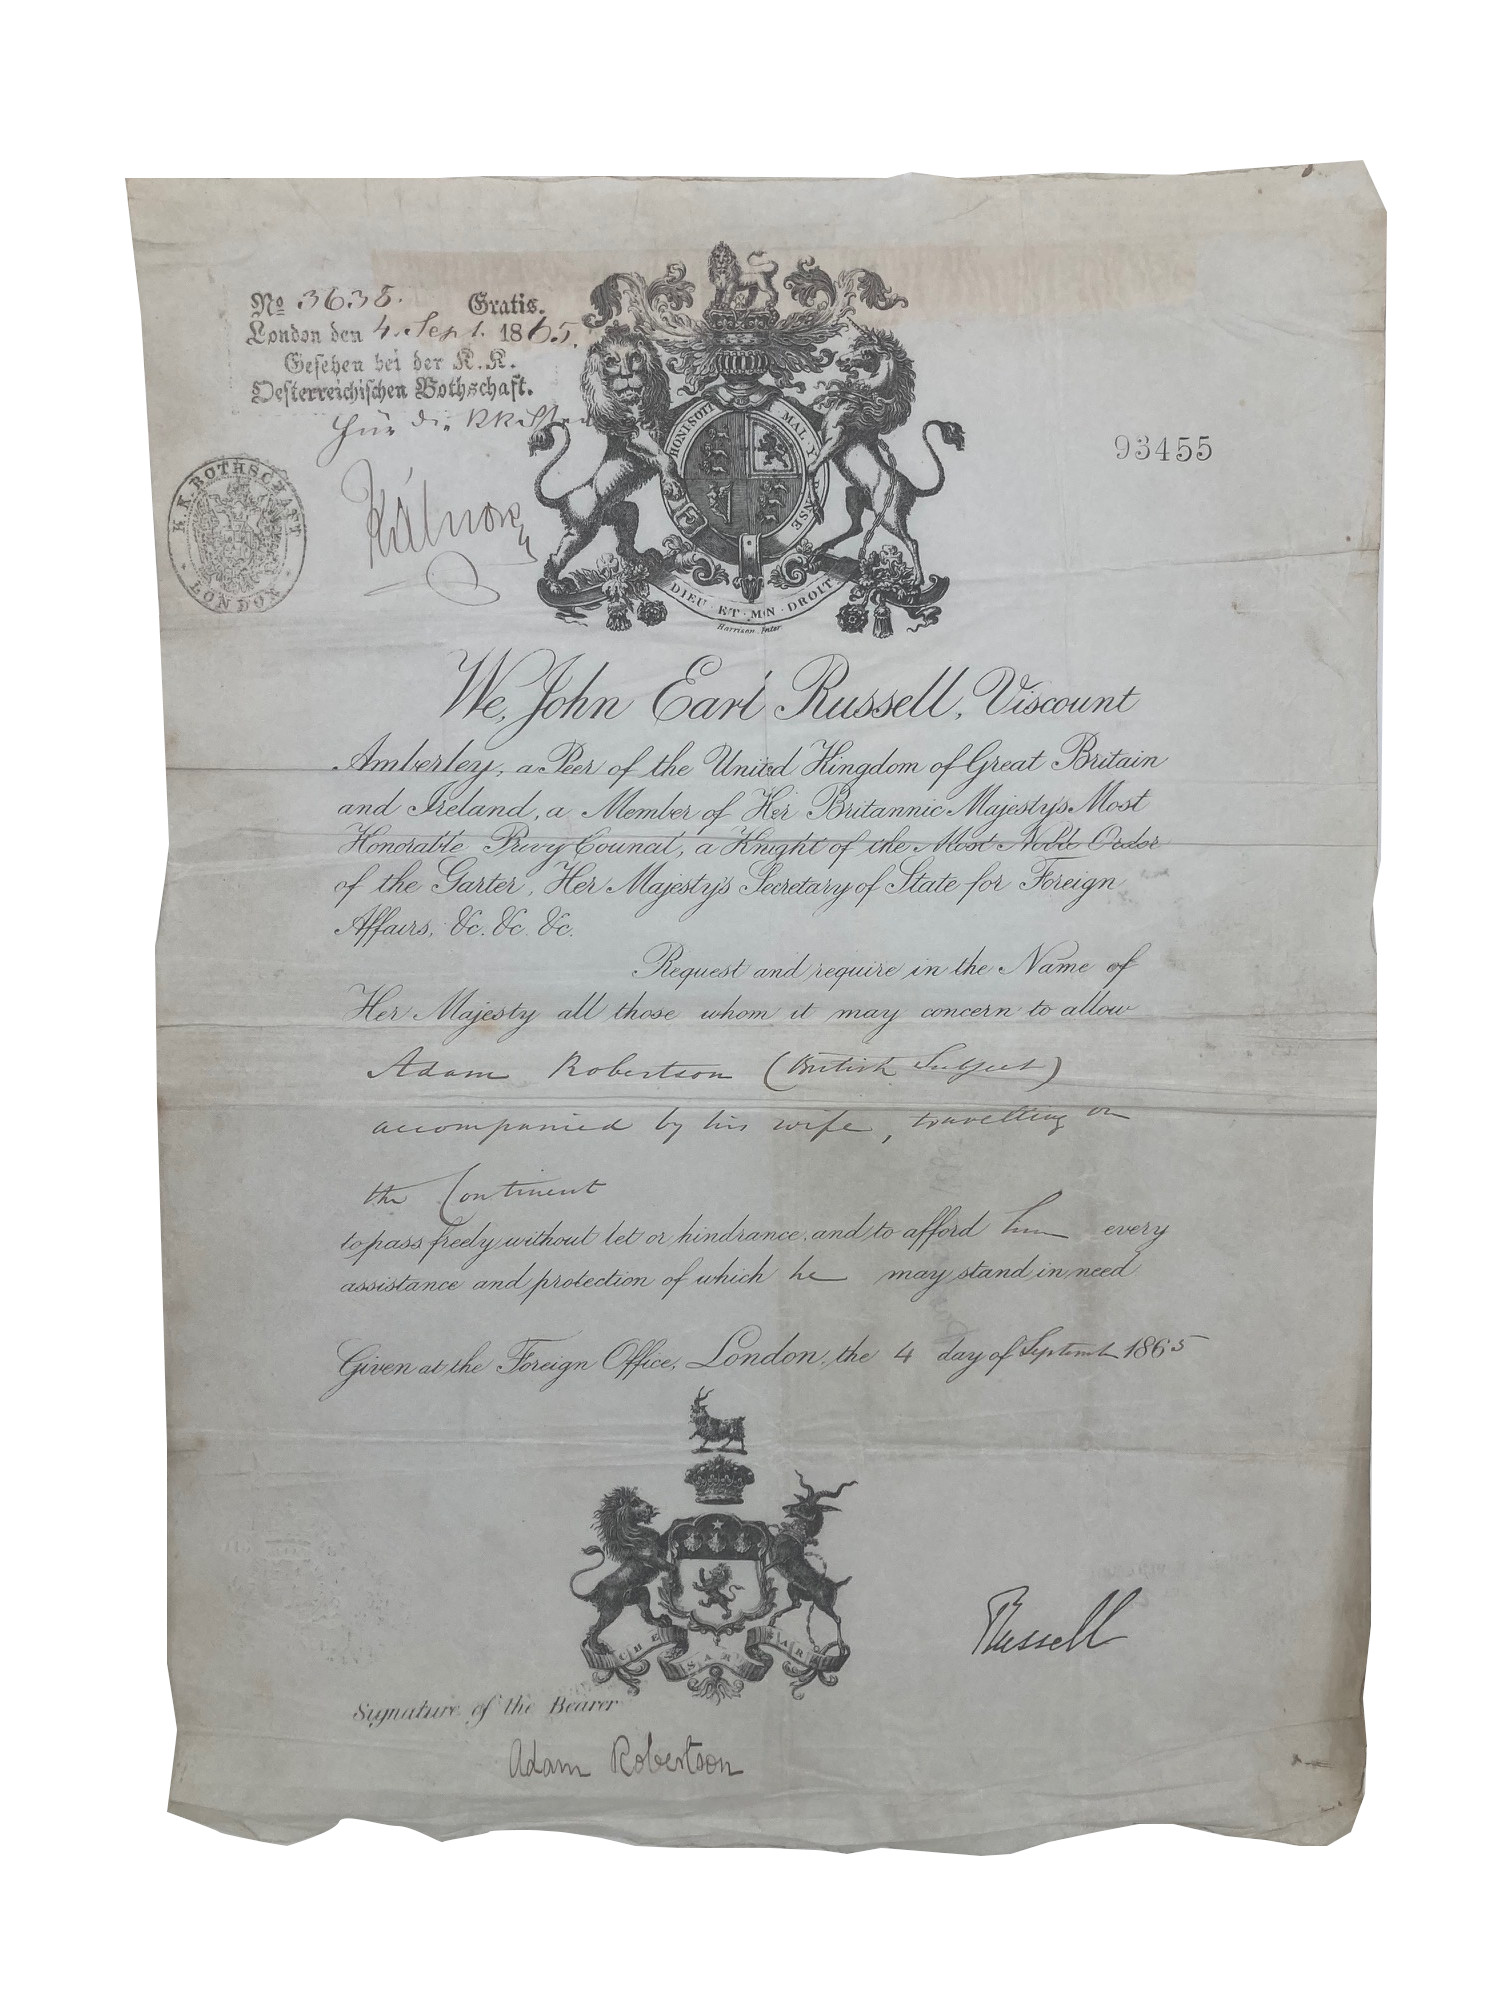 No 3638. Gratis.
London den 4. Sept. 1865.
Gesehen bei der K. K.
Oesterreichischen Bothschaft.
Für die
K. K. BOTHSCHAFT
LONDON
HONI SOIT MAL Y PENSE
DIEU ET MON DROIT
Harrison
93455
We, John Earl Russell, Viscount
Amberley, a Peer of the United Kingdom of Great Britain
and Ireland, a Member of Her Britannic Majesty's Most
Honorable Privy Council, a Knight of the Most Noble Order
of the Garter, Her Majesty's Secretary of State for Foreign
Affairs, &c. &c. &c.
Request and require in the Name of
Her Majesty all those whom it may concern to allow
Adam Robertson (British Subject)
accompanied by his wife, travelling on
the Continent
to pass freely without let or hindrance, and to afford him every
assistance and protection of which he may stand in need
Given at the Foreign Office, London, the 4 day of September 1865
CHE SARA SARA
Russell
Signature of the Bearer
Adam Robertson